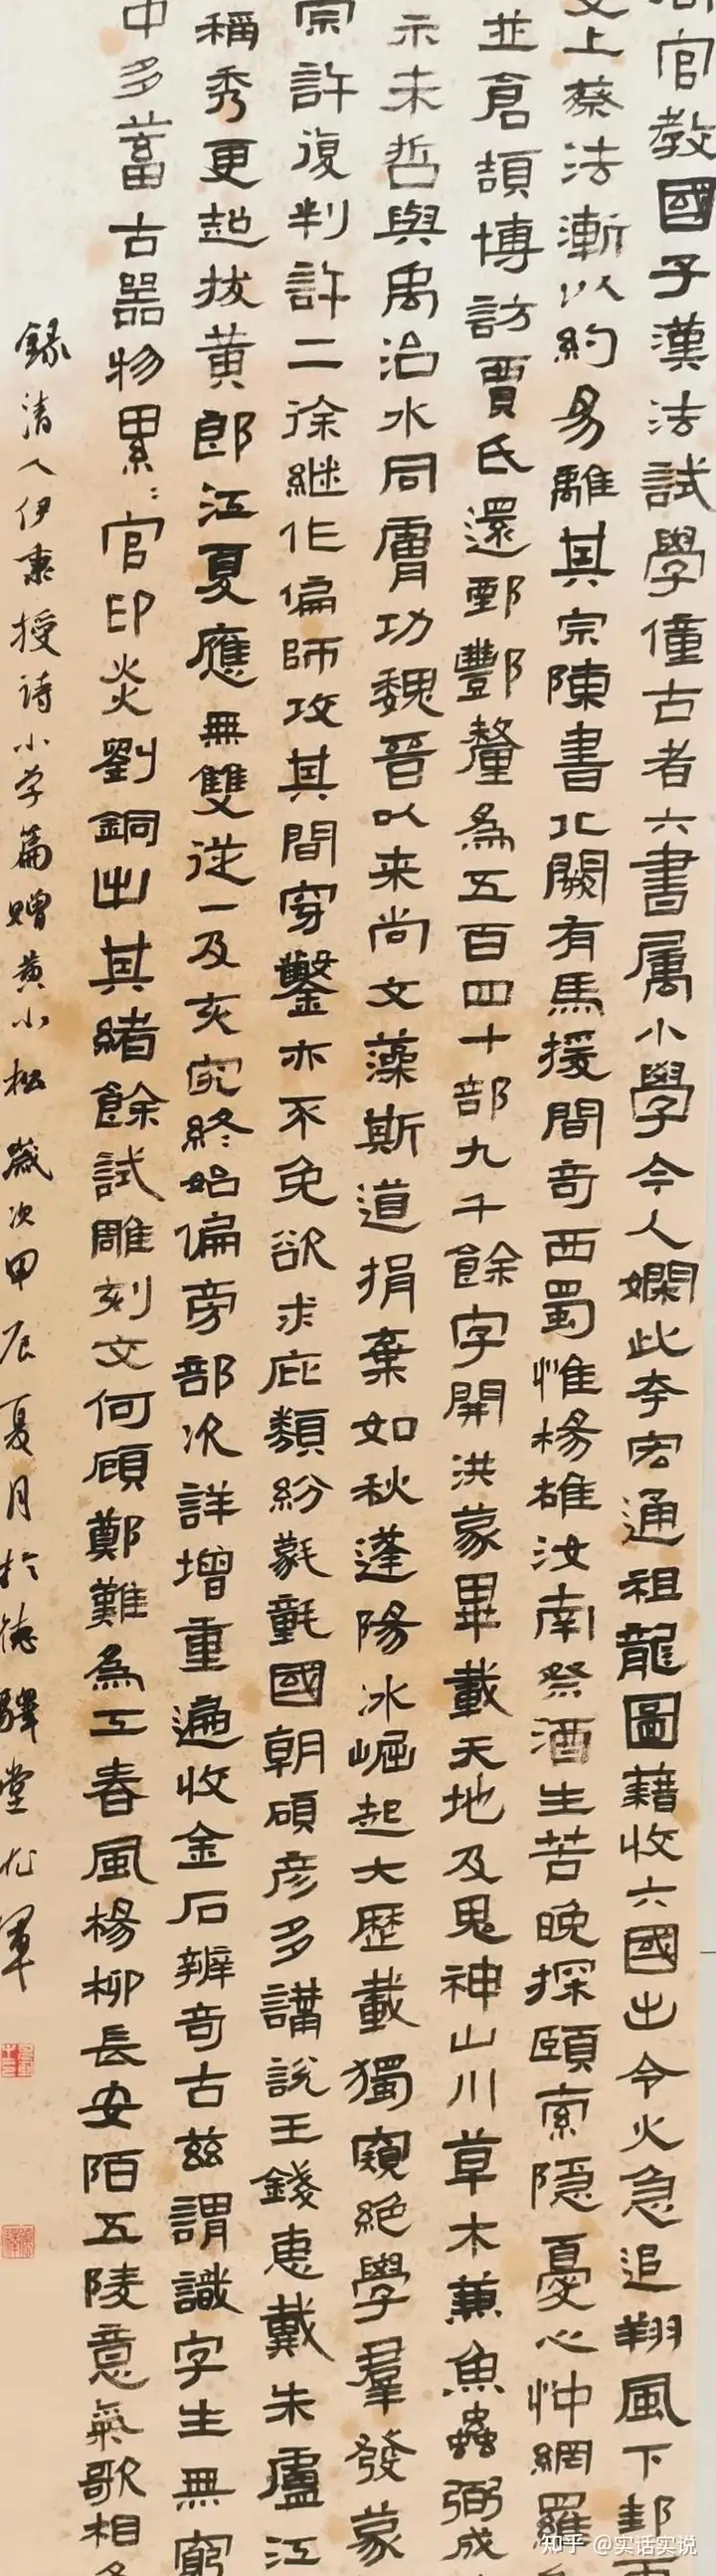 官教國子漢法試學僮古者六書属小學今人嫻此李宏通祖龍圖籍收六國出令火急追翔風下邽
上蔡法漸以約易離其宗陳書北闕有馬援間奇西蜀惟楊雄汝南祭酒生苦晚探賾索隱憂心忡網羅
並倉頡博訪賈氏還鄄酆釐為五百四十部九千餘字開洪蒙畢載天地及鬼神山川草木蒹魚蟲弼成
示未哲與禹治水同膚功魏晉以来尚文藻斯道捐棄如秋蓬陽冰崛起大歷載獨窺絕學羣發蒙
宗許復判許二徐継作偏師攻其間穿鑿亦不免欲求庇類紛氋氃國朝碩彦多講說王錢惠戴朱盧江
稱秀更超拔黄郎江夏應無雙従一及亥究終始偏旁部次詳增重遍收金石辨奇古兹謂識字生無窮
中多蓄古器物累:官印炎劉銅出其緒餘試雕刻文何顧鄭難為工春風楊柳長安陌五陵意氣歌相
錄清人伊秉授詩小学篇贈黄小松歲次甲辰夏月於德驛堂 軍
知乎 @实话实说